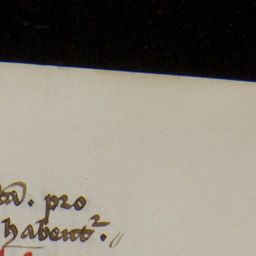 tā. pro
habent². //